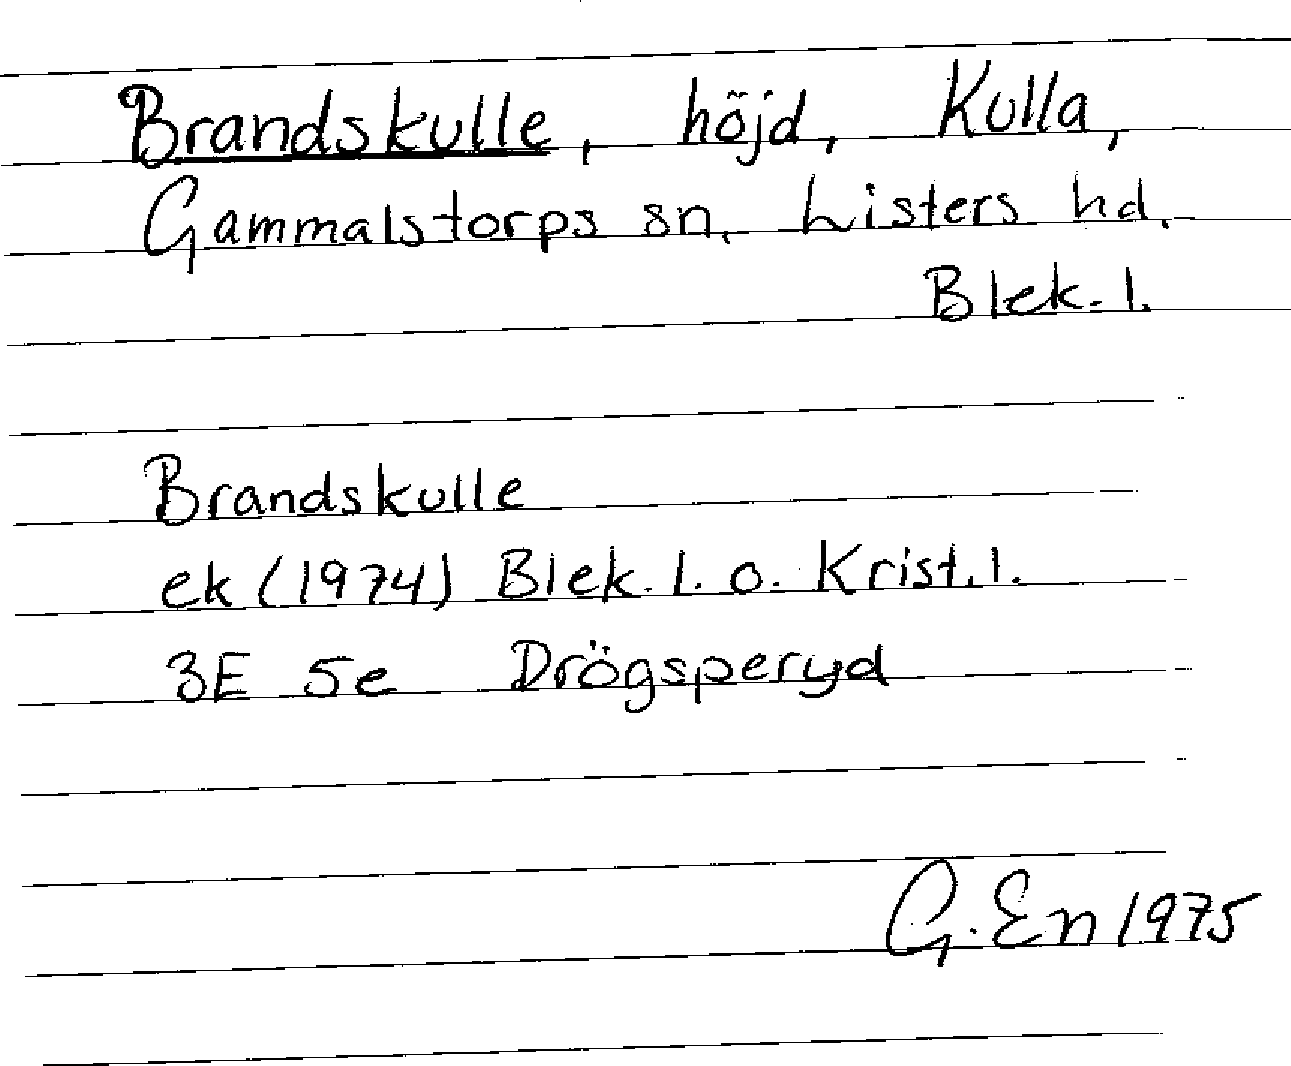 Brandskulle, höjd, Kulla,
Gammalstorps sn, Listers hd.
Blek. l.
Brandskulle
ek (1974) Blek. l. o. Krist. l.
3E 5e Drögsperyd
G. En 1975